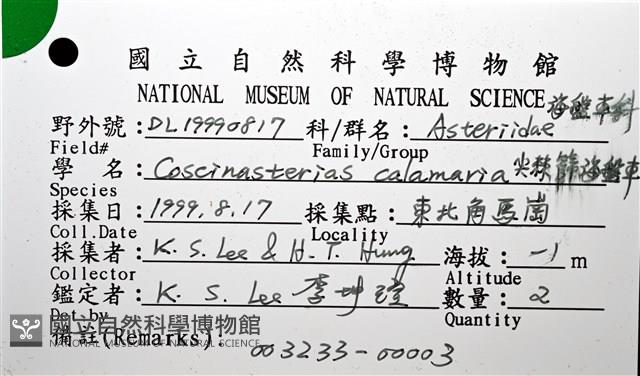 國立自然科學博物館
NATIONAL MUSEUM OF NATURAL SCIENCE 海盤車科
野外號：DL19990817 科/群名：Asteriidae
Field# Family/Group
學 名：Coscinasterias calamaria 尖棘篩海盤車
Species
採集日：1999.8.17 採集點：東北角馬崗
Coll.Date Locality
採集者：K.S. Lee & H.T. Hung 海拔：-1 m
Collector Altitude
鑑定者：K. S. Lee 李坤瑄 數量：2
Det.by Quantity
備註(Remarks)：
003233-00003
國立自然科學博物館
NATIONAL MUSEUM OF NATURAL SCIENCE